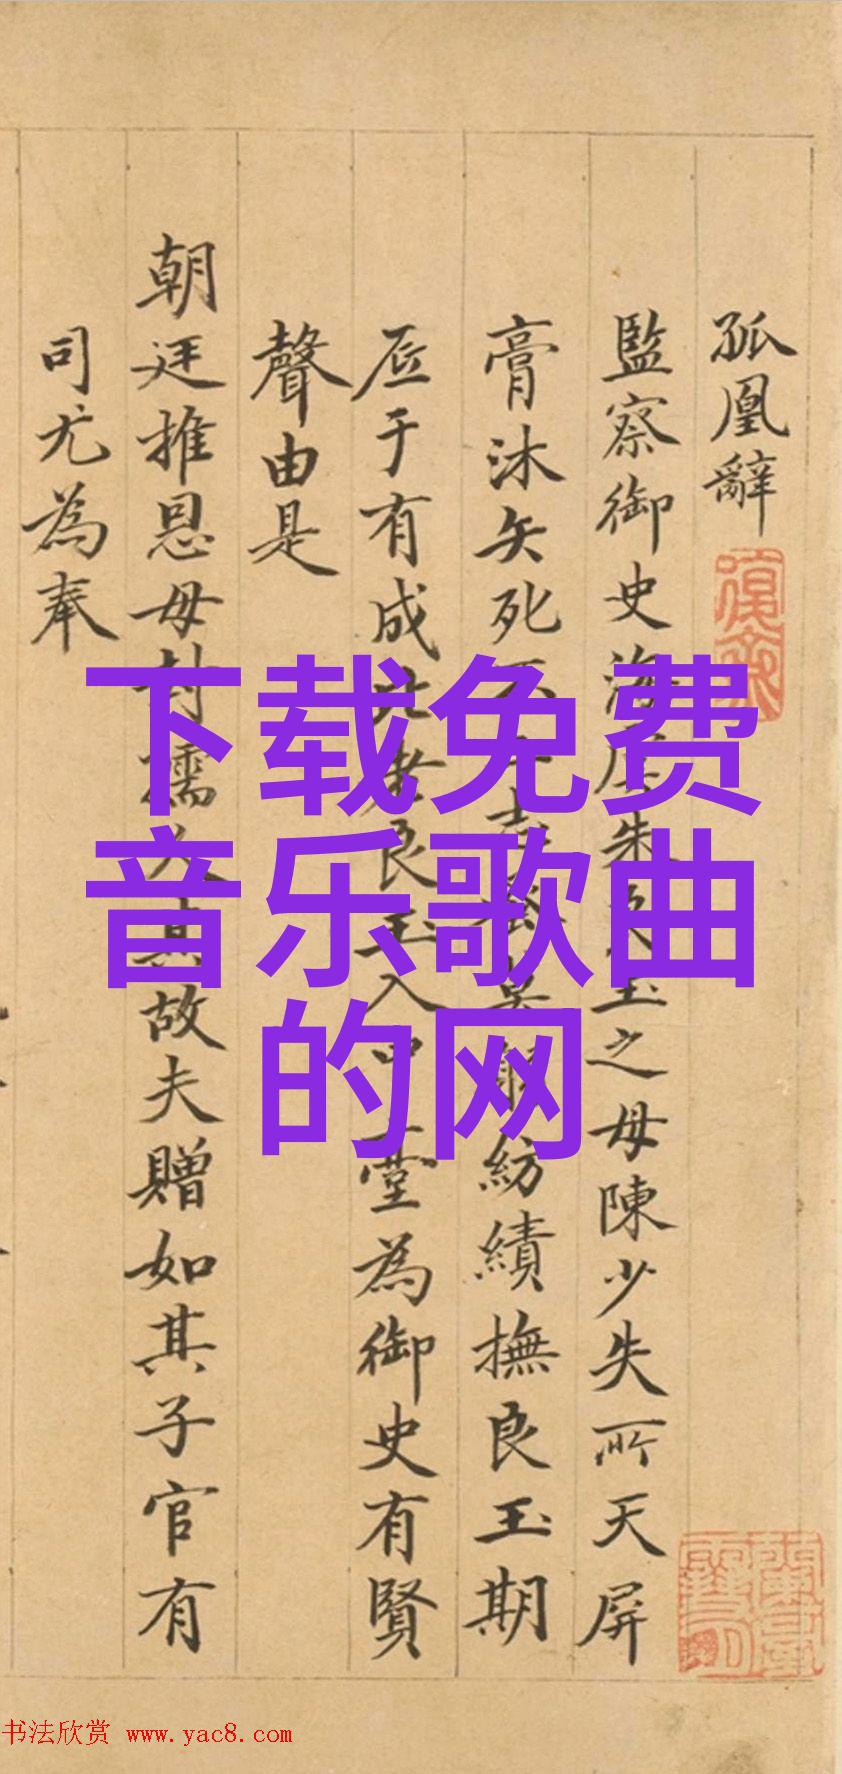 孤凰辭
監察御史海虞朱良玉之母陳少失所天屏
膏沐矢死不 志 紡績撫良玉期
底于有成比者良玉入中臺為御史有賢
聲由是
朝廷推恩母封孺人其故夫贈如其子官有
司尤為奉
下载免费
音乐歌曲
的网
书法欣赏 www.yac8.com